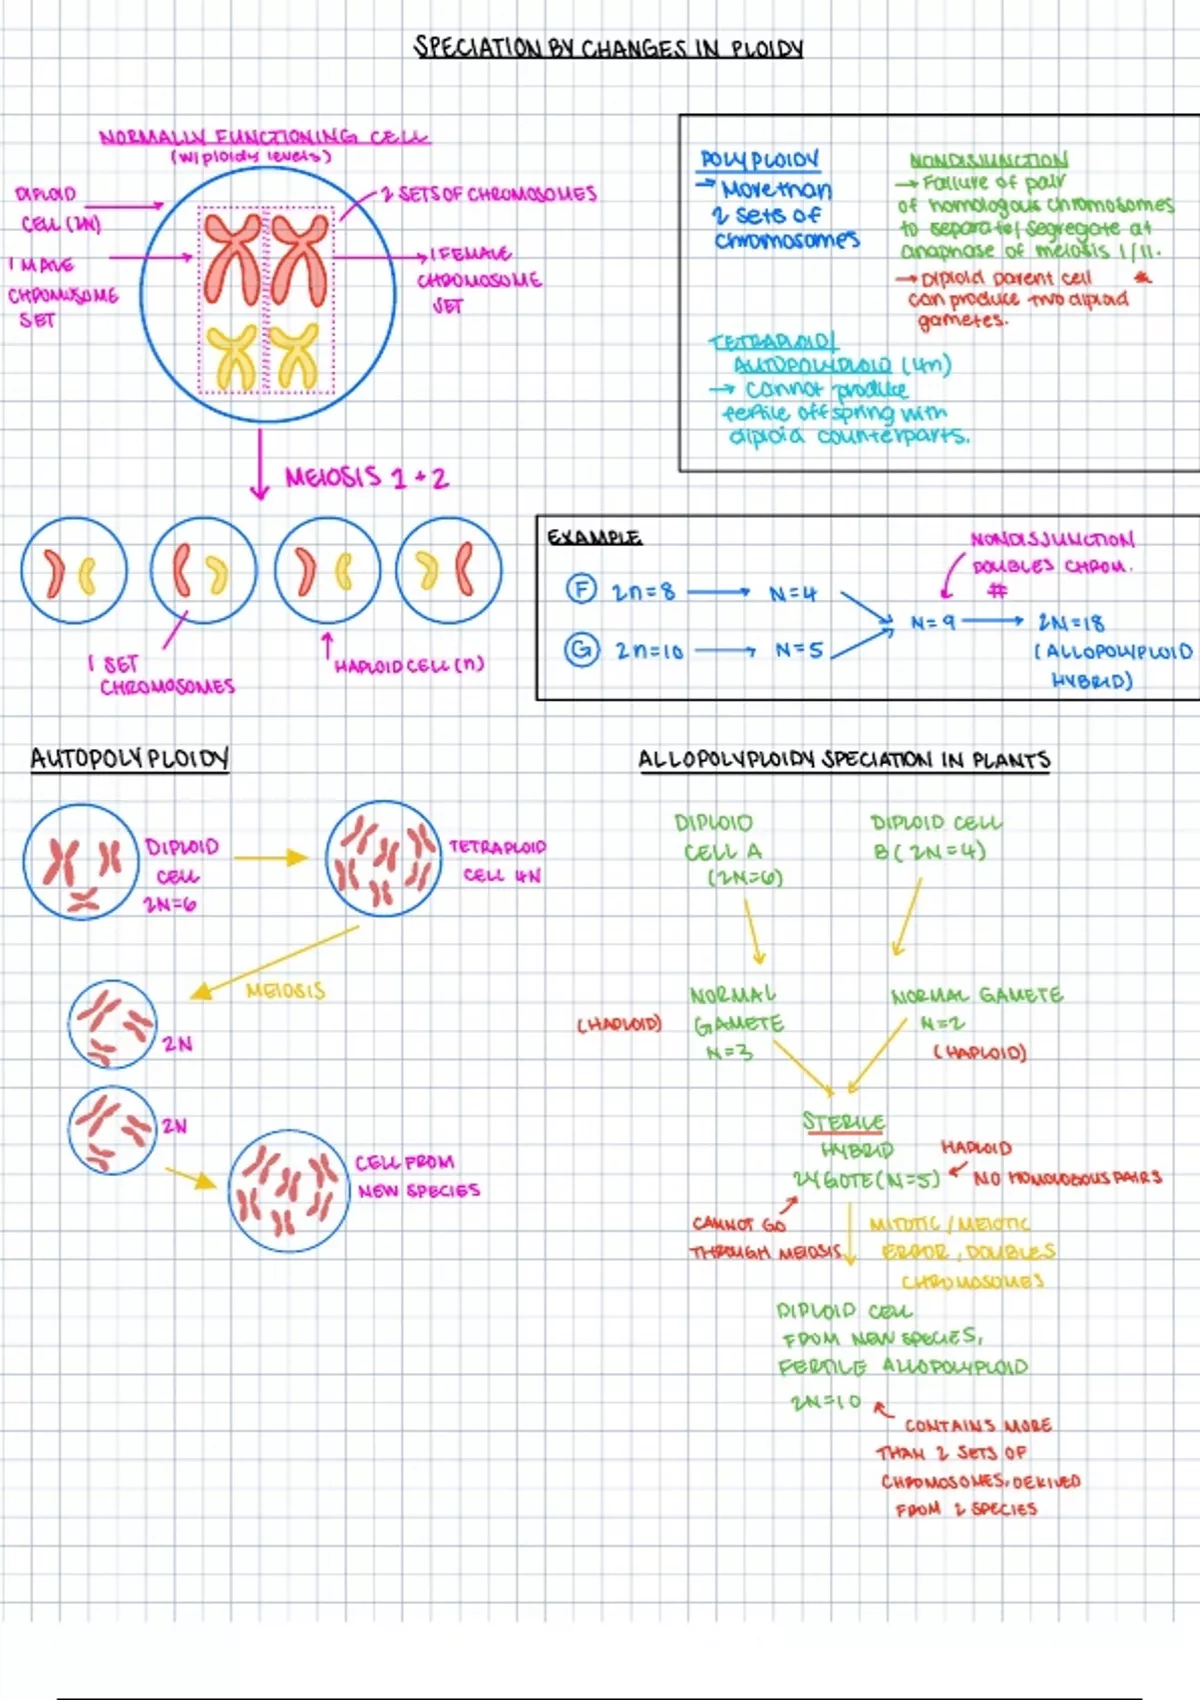 SPECIATION BY CHANGES IN PLOIDY
NORMALLY FUNCTIONING CELL
(w/ ploidy levels)
DIPLOID
CELL (2N)
2 SETS OF CHROMOSOMES
1 MALE
CHROMOSOME
SET
1 FEMALE
CHROMOSOME
SET
MEIOSIS 1 + 2
1 SET
CHROMOSOMES
HAPLOID CELL (n)
POLYPLOIDY
→ More than
2 sets of
chromosomes
NONDISJUNCTION
→ Failure of pair
of homologous chromosomes
to separate/segregate at
anaphase of meiosis I/II.
→ Diploid parent cell *
can produce two diploid
gametes.
TETRAPLOID/
AUTOPOLYPLOID (4n)
→ cannot produce
fertile offspring with
diploid counterparts.
EXAMPLE
NONDISJUNCTION
DOUBLES CHROM.
#
F 2n=8 → N=4
N=9 → 2N=18
G 2n=10 → N=5
(ALLOPOLYPLOID
HYBRID)
AUTOPOLYPLOIDY
DIPLOID
CELL
2N=6
TETRAPLOID
CELL 4N
MEIOSIS
2N
2N
CELL FROM
NEW SPECIES
ALLOPOLYPLOIDY SPECIATION IN PLANTS
DIPLOID
CELL A
(2N=6)
DIPLOID CELL
B (2N=4)
NORMAL
(HAPLOID) GAMETE
N=3
NORMAL GAMETE
N=2
(HAPLOID)
STERILE
HYBRID
ZYGOTE (N=5)
HAPLOID
NO HOMOLOGOUS PAIRS
CANNOT GO
THROUGH MEIOSIS
MITOTIC / MEIOTIC
ERROR, DOUBLES
CHROMOSOMES
DIPLOID CELL
FROM NEW SPECIES,
FERTILE ALLOPOLYPLOID
2N=10
CONTAINS MORE
THAN 2 SETS OF
CHROMOSOMES, DERIVED
FROM 2 SPECIES